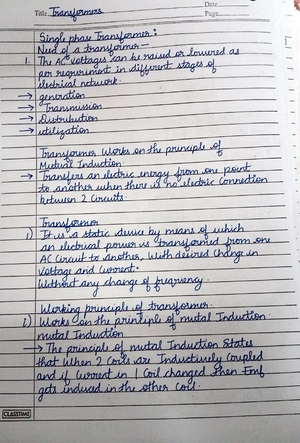 Title Transformers
Date
Page
Single phase Transformer:
Need of a transformer—
1. The AC voltages can be raised or lowered as
per requriment in different stages of
electrical network.
→ generation
→ Transmission
→ Distribution
→ utilization
Transformer Works on the principle of
Mutual Induction.
→ Transfers an electric energy from one point
to another when there is no electric Connection
between 2 Circuits.
Transformer
1) It is a static device by means of which
an electrical power is transformed from one
AC Circuit to another, with desired Change in
Voltage and Current.
Without any change of frequency
Working principle of transformer.
1) Works on the principle of mutal Induction
mutal Induction
→ The principle of mutal Induction States
that When 2 Coils are Inductively Coupled
and if Current in 1 Coil changed then Emf
gets induced in the other Coil.
CLASSTIME